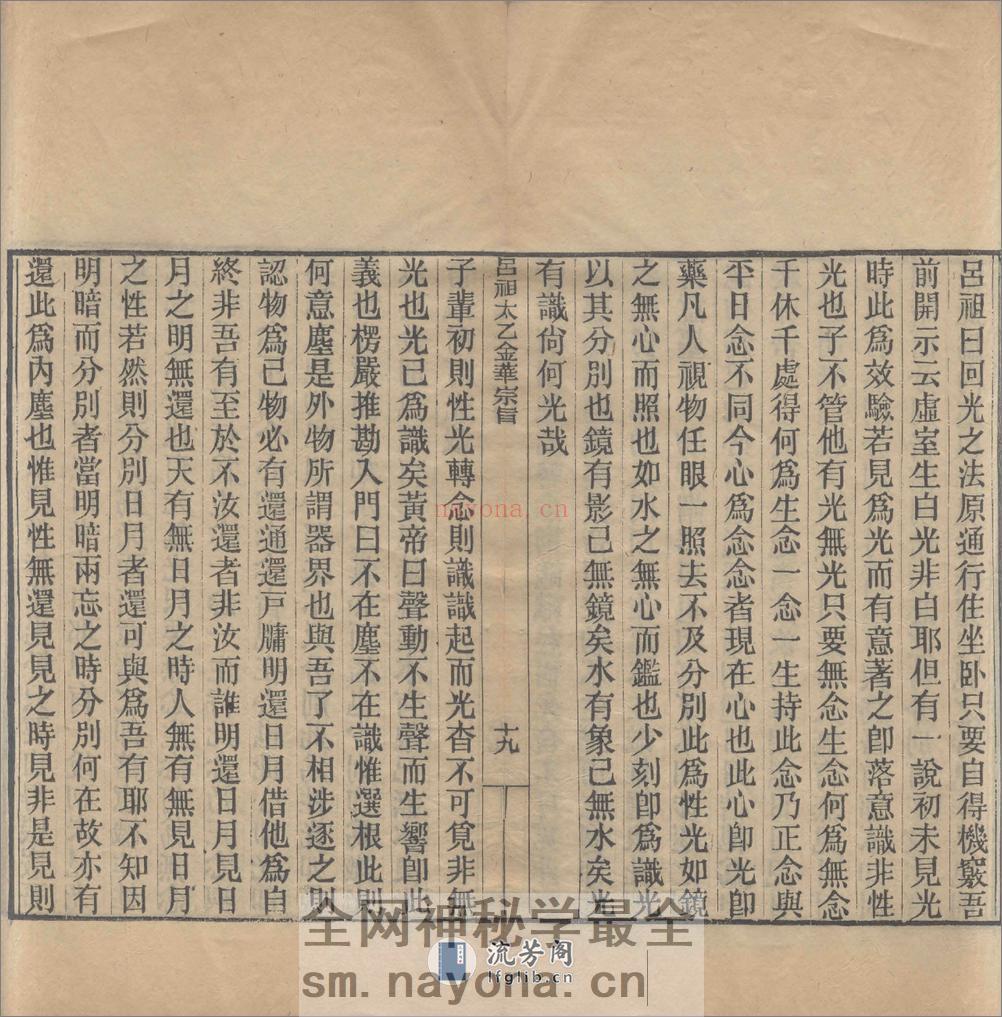 呂祖曰回光之法原通行住坐臥只要自得機竅吾
前開示云虛室生白光非白耶但有一說初未見光
時此爲效驗若見爲光而有意著之卽落意識非性
光也子不管他有光無光只要無念生念何爲無念
千休千處得何爲生念一念一生持此念乃正念與
平日念不同今心爲念念者現在心也此心卽光卽
藥凡人視物任眼一照去不及分別此爲性光如鏡
之無心而照也如水之無心而鑑也少刻卽爲識光
以其分別也鏡有影己無鏡矣水有象己無水矣光
有識尙何光哉
呂祖太乙金華宗旨
十九
子輩初則性光轉念則識識起而光杳不可覓非無
光也光已爲識矣黃帝曰聲動不生聲而生響卽此
義也楞嚴推勘入門曰不在塵不在識惟選根此則
何意塵是外物所謂器界也與吾了不相涉逐之則
認物爲己物必有還通還戶牖明還日月借他爲自
終非吾有至於不汝還者非汝而誰明還日月見日
月之明無還也天有無日月之時人無有無見日月
之性若然則分別日月者還可與爲吾有耶不知因
明暗而分別者當明暗兩忘之時分別何在故亦有
還此爲內塵也惟見性無還見見之時見非是見則
nayona.cn
全网神秘学最全
流芳阁
lfglib.cn
sm.nayona.cn